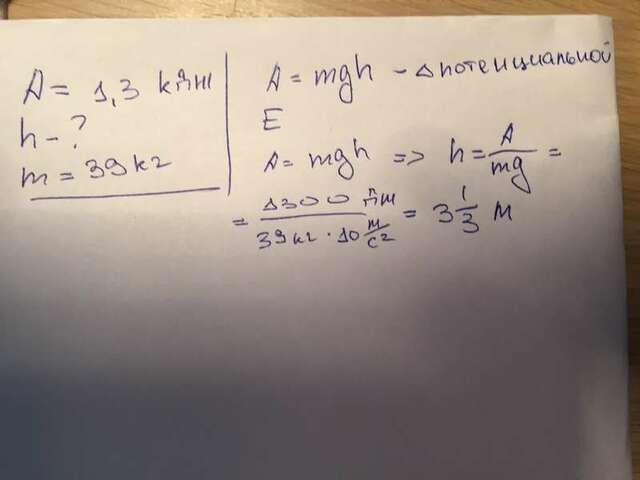 A = 1,3 кДж
h - ?
m = 39 кг
A = mgh - Δ потенциальной
E
A = mgh => h = A/mg =
= 1300 Дж / 39 кг · 10 м/с² = 3 1/3 м